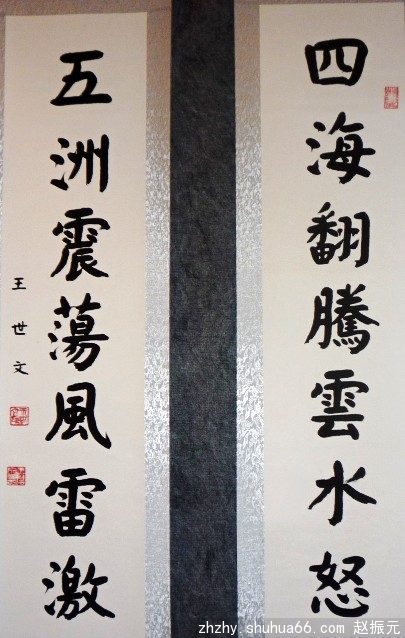 四海翻騰雲水怒
五洲震蕩風雷激
王世文
zhzhy.shuhua66.com 赵振元